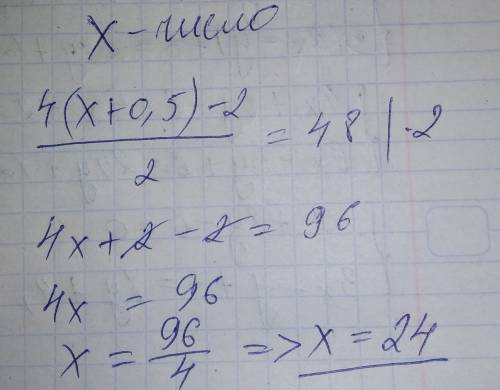 x - число
4(x+0,5)-2 / 2 = 48 | ·2
4x+2-2=96
4x = 96
x = 96/4 => x = 24